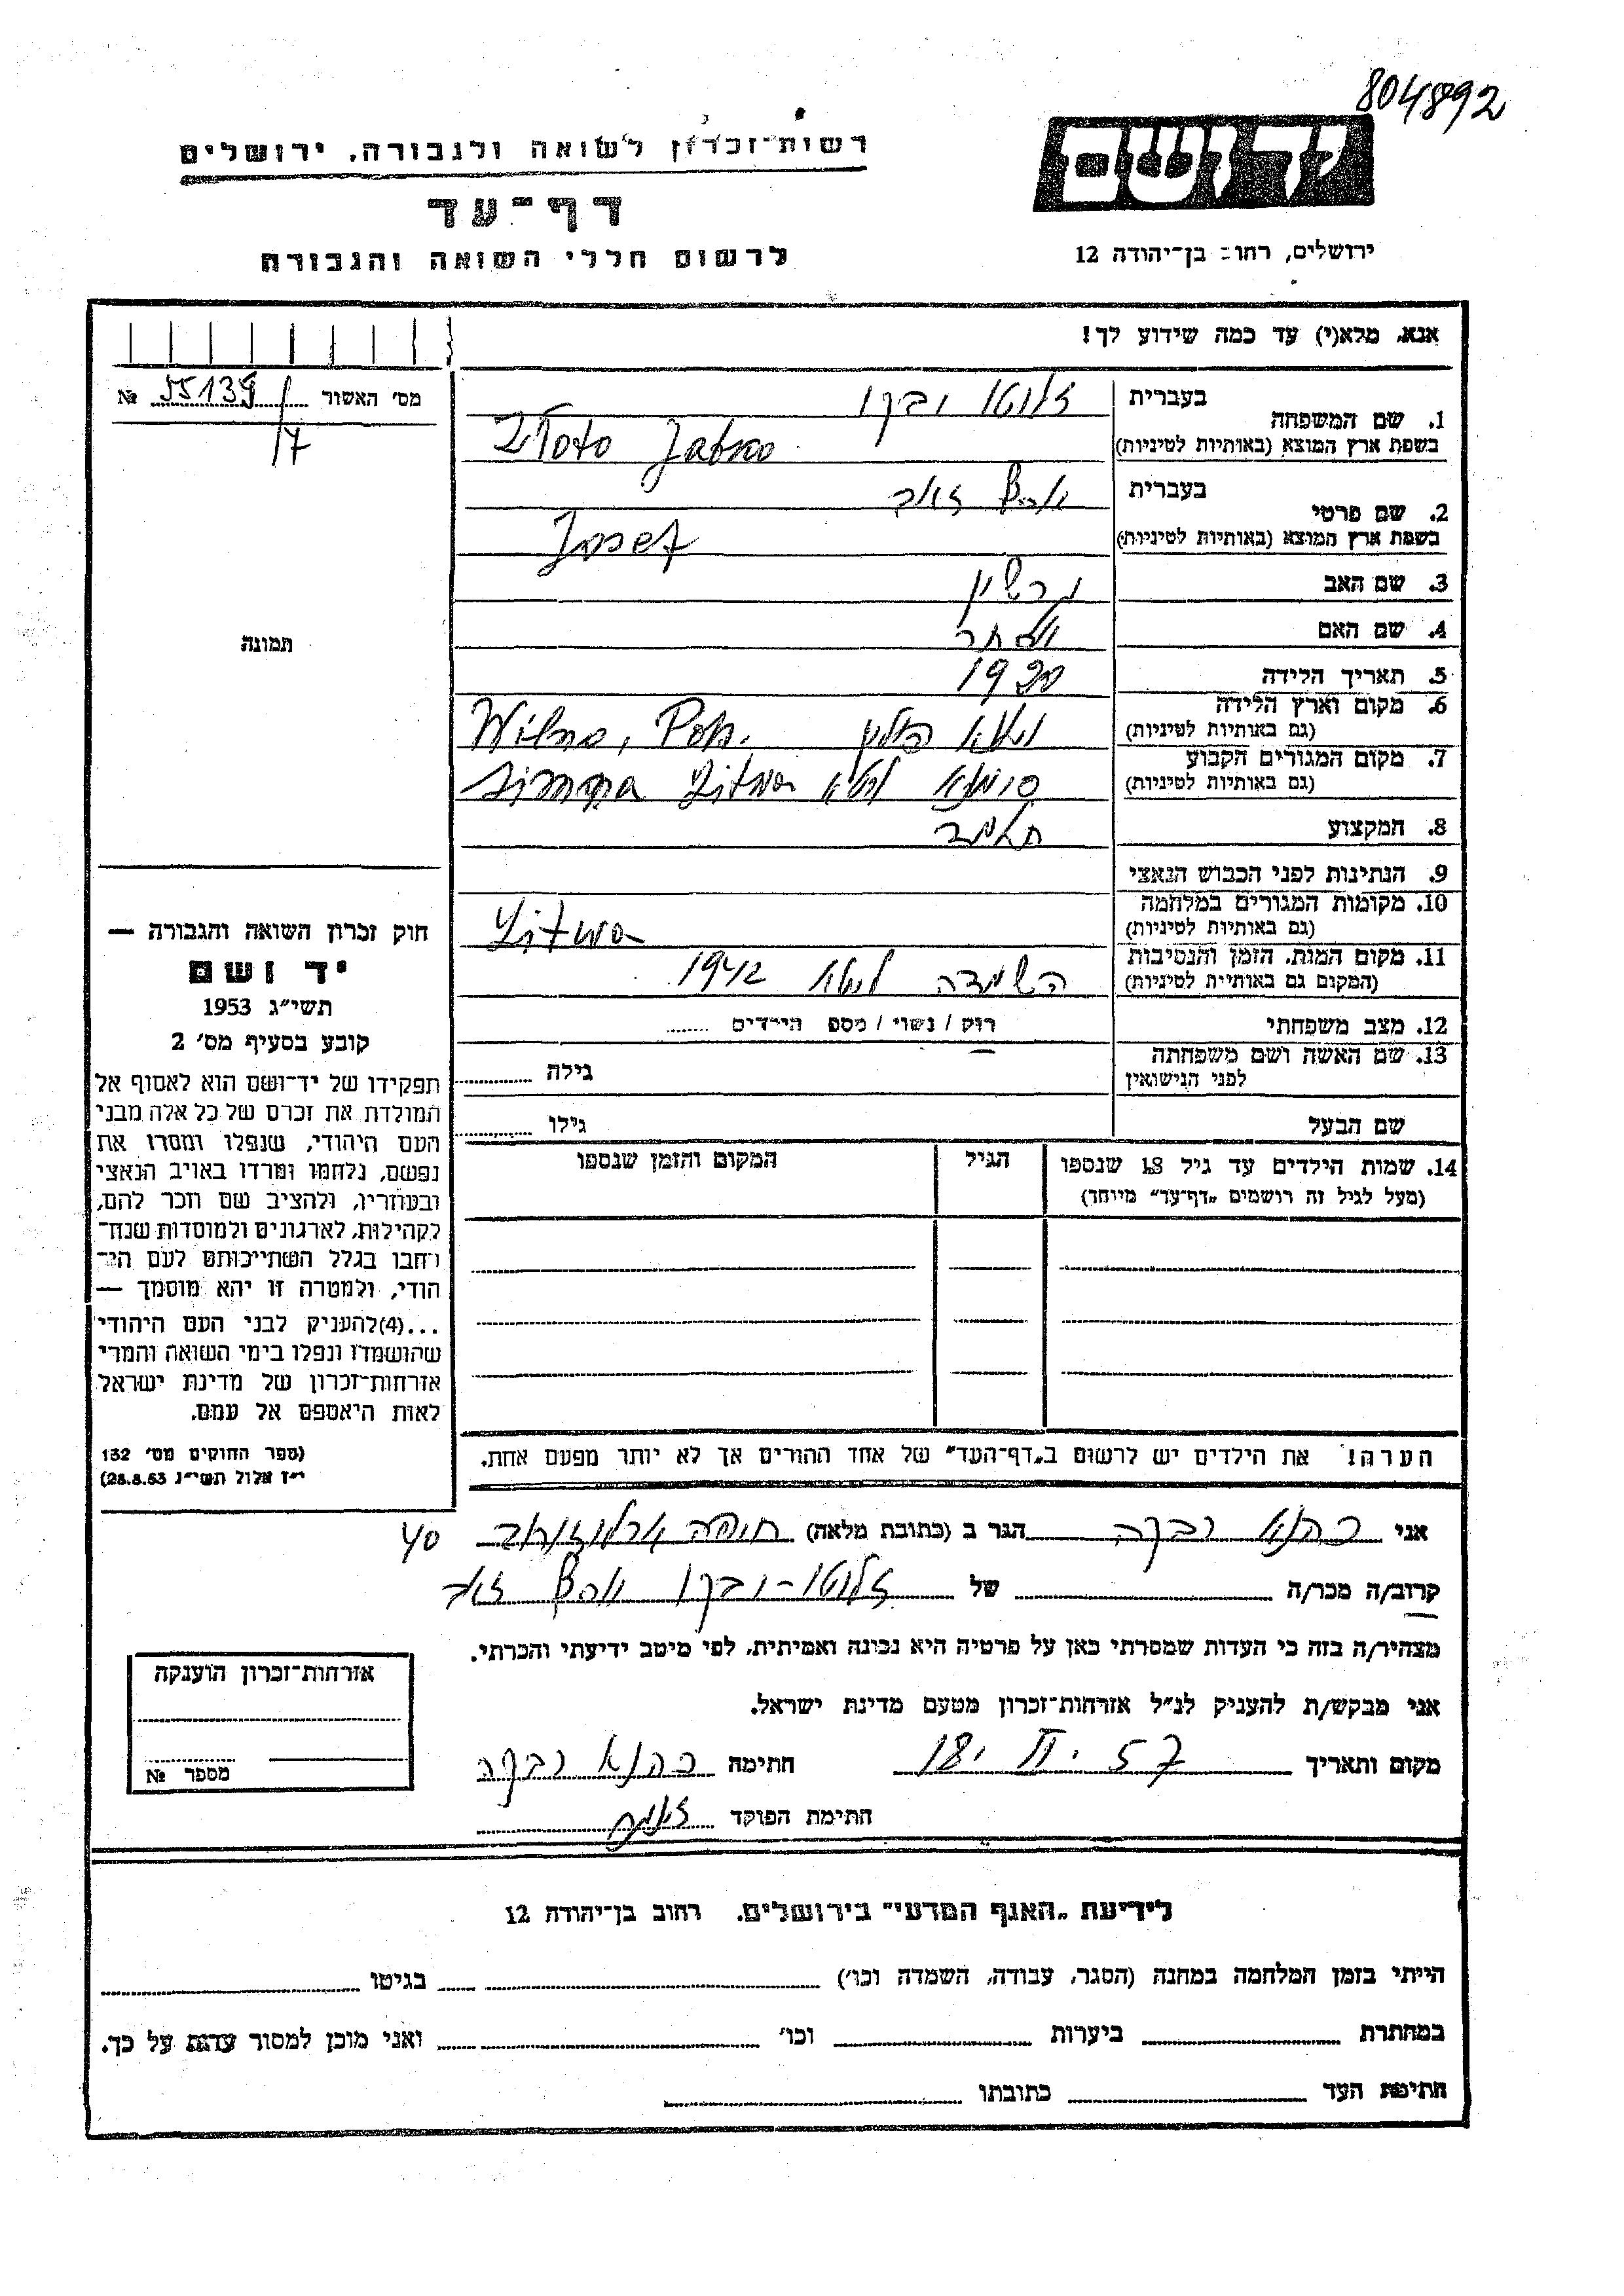 8041892
רשות־זכרון לשואה ולגבורה, ירושלים
יד ושם
דף־עד
לרשום חללי השואה והגבורה
ירושלים, רחוב בן־יהודה 12
אנא, מלא(י) עד כמה שידוע לך!
מס׳ האשור 55139 №
17
1. שם המשפחה
בעברית זלוטו יבקו
בשפת ארץ המוצא (באותיות לטיניות) Złoto Jabko
2. שם פרטי
בעברית זאב
בשפת ארץ המוצא (באותיות לטיניות) Josef
3. שם האב גרשון
4. שם האם
5. תאריך הלידה 1920
6. מקום וארץ הלידה
(גם באותיות לטיניות) וילנא פולין Wilno, Pol.
7. מקום המגורים הקבוע
(גם באותיות לטיניות) ליטא Litwa
8. המקצוע
9. הנתינות לפני הכבוש הנאצי
10. מקומות המגורים במלחמה
(גם באותיות לטיניות) Litwa
11. מקום המות, הזמן והנסיבות
(המקום גם באותיות לטיניות) השמדה ליטא 1942
12. מצב משפחתי רוק / נשוי / מספ הילדים
13. שם האשה ושם משפחתה
לפני הנישואין גילה
שם הבעל גילו
14. שמות הילדים עד גיל 18 שנספו הגיל המקום והזמן שנספו
(מעל לגיל זה רושמים „דף־עד” מיוחד)
הערה! את הילדים יש לרשום ב„דף־העד” של אחד ההורים אך לא יותר מפעם אחת.
תמונה
חוק זכרון השואה והגבורה —
יד ושם
תשי״ג 1953
קובע בסעיף מס׳ 2
תפקידו של יד־ושם הוא לאסוף אל
המולדת את זכרם של כל אלה מבני
העם היהודי, שנפלו ומסרו את
נפשם, נלחמו ומרדו באויב הנאצי
ובעוזריו, ולהציב שם וזכר להם,
לקהילות, לארגונים ולמוסדות שנח־
רחבו בגלל השתייכותם לעם הי־
הודי, ולמטרה זו יהא מוסמך —
...(4)להעניק לבני העם היהודי
שהושמדו ונפלו בימי השואה והמרי
אזרחות־זכרון של מדינת ישראל
לאות היאספם אל עמם.
(ספר החוקים מס׳ 132
י״ז אלול תשי״ג 28.8.53)
אני כהנא רבקה הגר ב (כתובת מלאה) חיפה ארלוזורוב 40
קרוב/ה מכר/ה של זלוטו-יבקו זאב
מצהיר/ה בזה כי העדות שמסרתי כאן על פרטיה היא נכונה ואמיתית, לפי מיטב ידיעתי והכרתי.
אני מבקש/ת להעניק לנ״ל אזרחות־זכרון מטעם מדינת ישראל.
מקום ותאריך חתימה כהנא רבקה
חתימת הפוקד
אזרחות־זכרון הוענקה
מספר №
לידיעת „האגף המדעי” בירושלים, רחוב בן־יהודה 12
הייתי בזמן המלחמה במחנה (הסגר, עבודה, השמדה וכו׳) בגיטו
במחתרת ביערות וכו׳ ואני מוכן למסור עדות על כך.
חתימת העד כתובתו